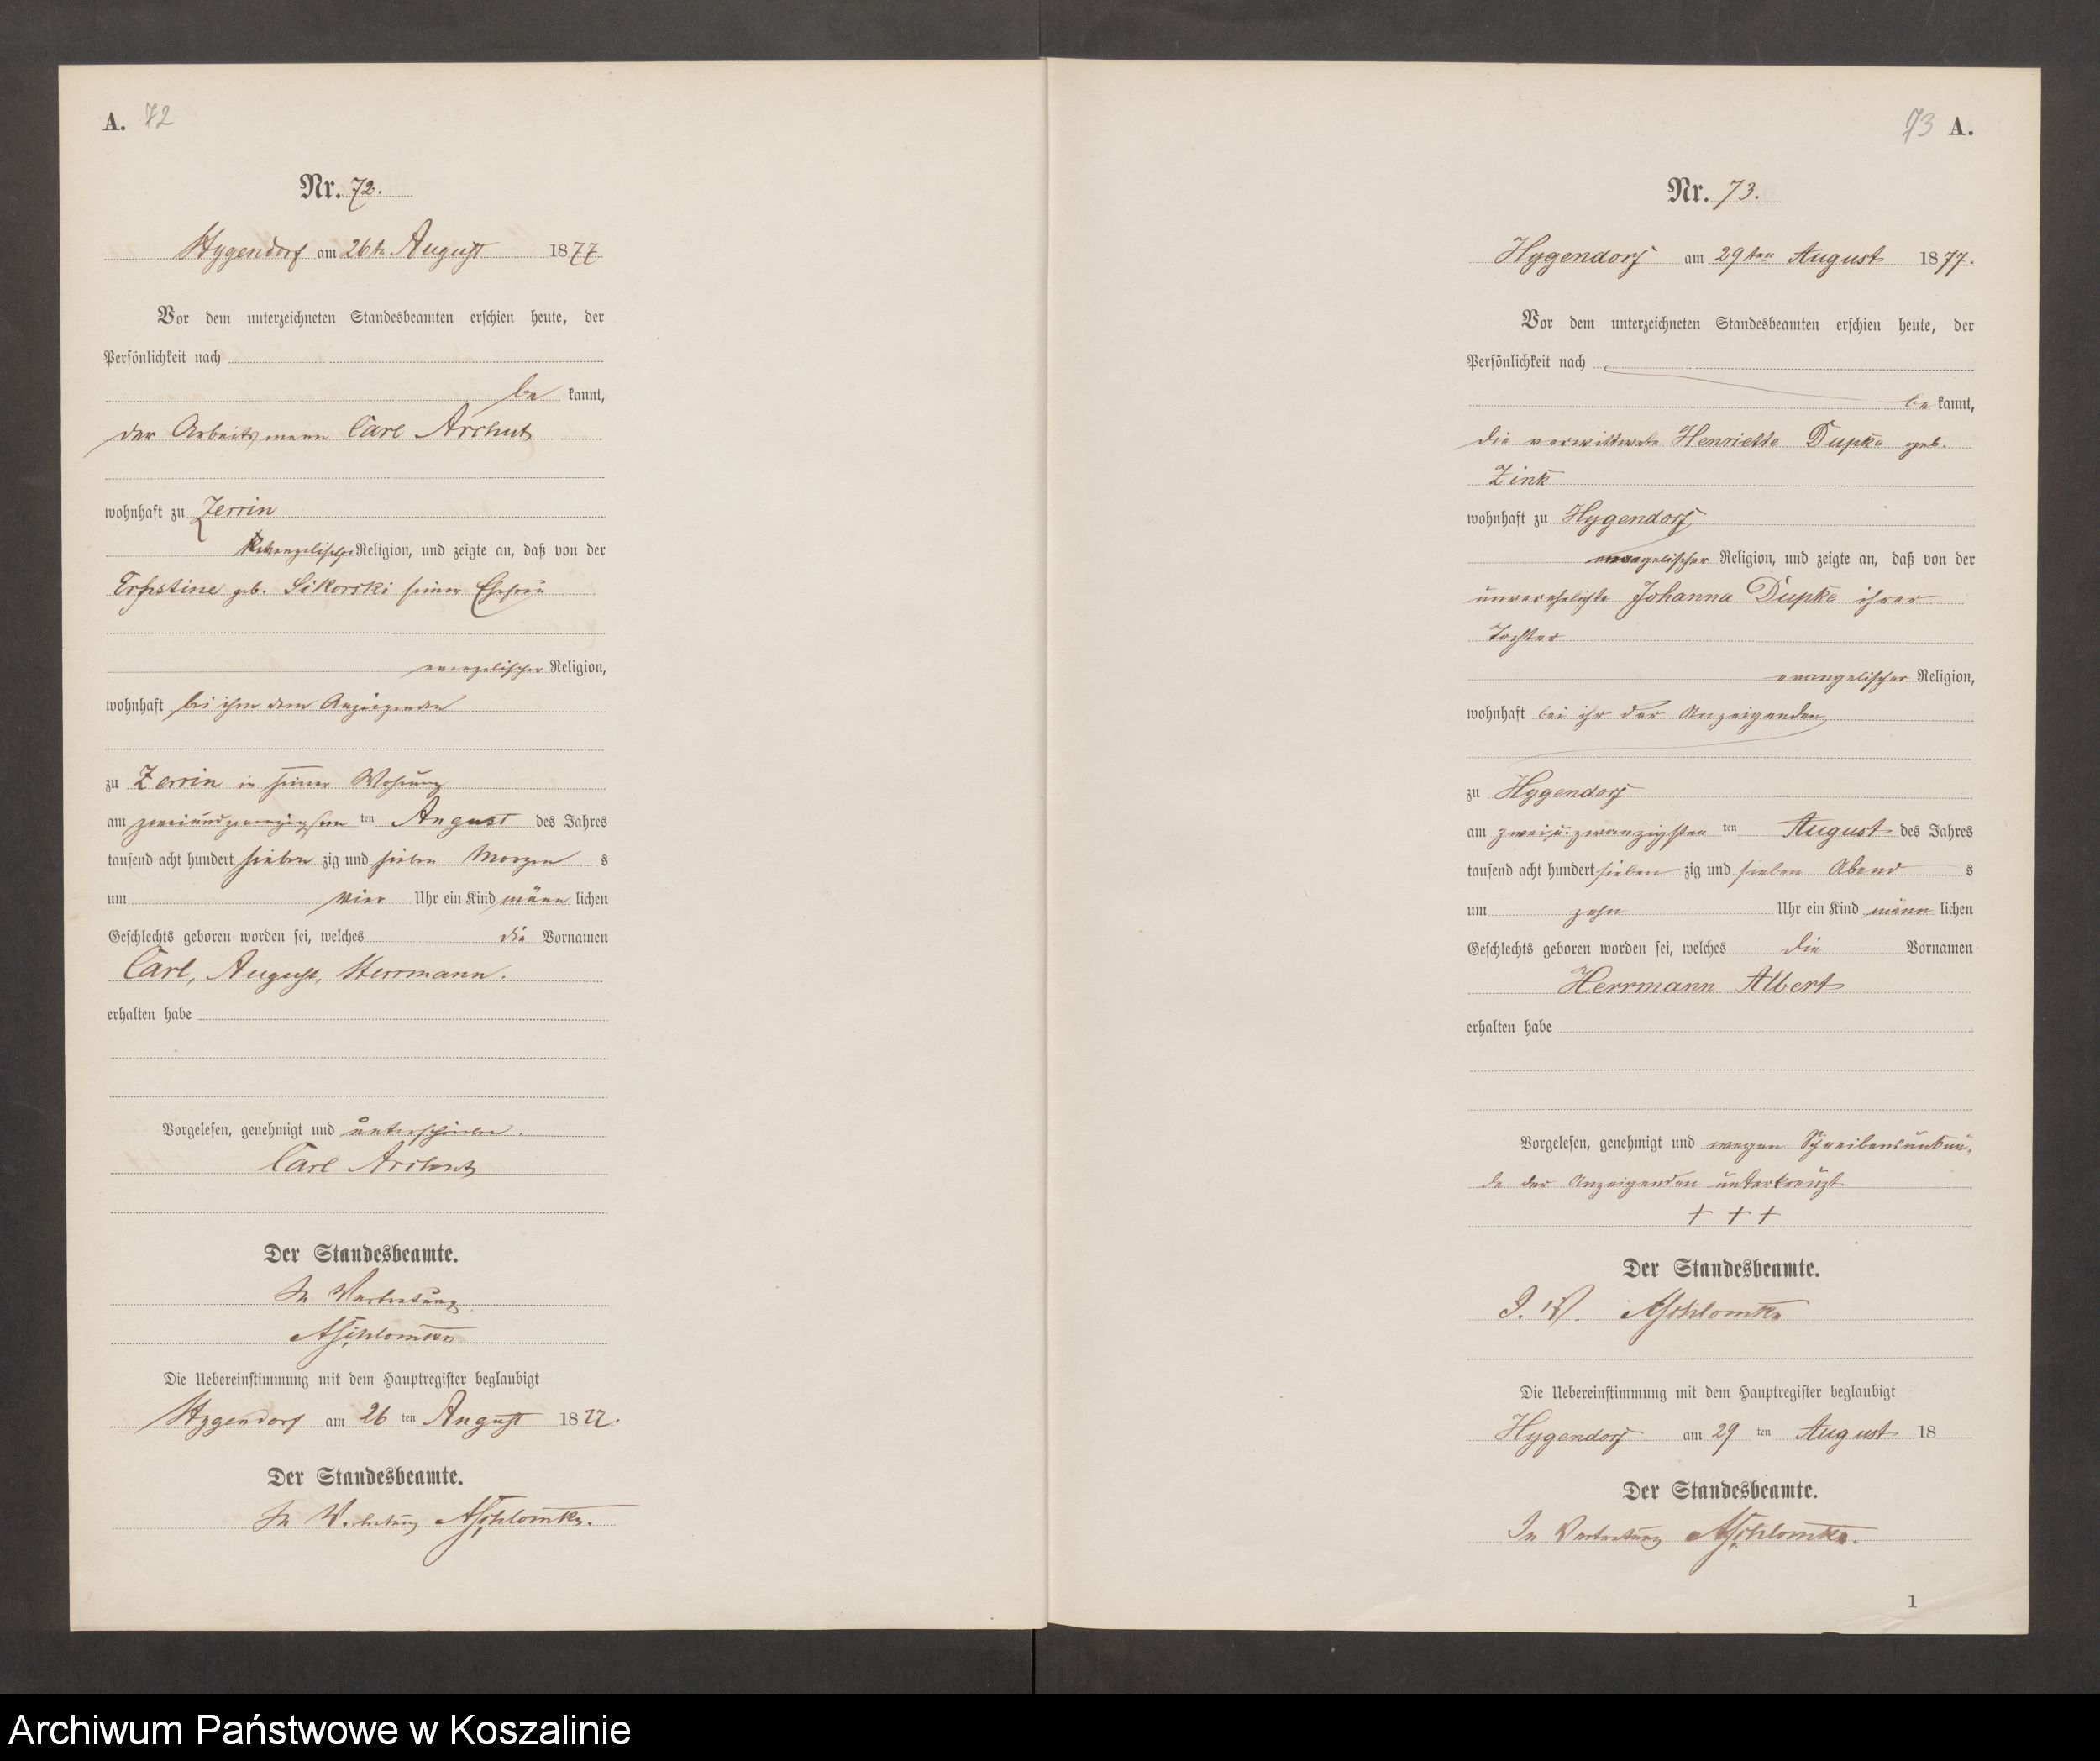 A. 72
Nr. 72.
Hygendorf am 26te August 1877
Vor dem unterzeichneten Standesbeamten erschien heute, der
Persönlichkeit nach
be kannt,
der Arbeitsmann Carl Archut
wohnhaft zu Zerrin
evangelischer Religion, und zeigte an, daß von der
Ernstine geb. Sikorski seiner Ehefrau
evangelischer Religion,
wohnhaft bei ihm dem Anzeigenden
zu Zerrin in seiner Wohnung
am zweiundzwanzigsten ten August des Jahres
tausend acht hundert sieben zig und sieben Morgen s
um vier Uhr ein Kind männ lichen
Geschlechts geboren worden sei, welches die Vornamen
Carl, August, Herrmann.
erhalten habe
Vorgelesen, genehmigt und unterschrieben.
Carl Archut
Der Standesbeamte.
In Vertretung
Die Uebereinstimmung mit dem Hauptregister beglaubigt
Hygendorf am 26 ten August 1877.
Der Standesbeamte.
In Vertretung
73 A.
Nr. 73.
Hygendorf am 29ten August 1877.
Vor dem unterzeichneten Standesbeamten erschien heute, der
Persönlichkeit nach
be kannt,
die verwittwete Henriette Dupke geb.
Zink
wohnhaft zu Hygendorf
evangelischer Religion, und zeigte an, daß von der
unverehelichte Johanna Dupke ihrer
Tochter
evangelischer Religion,
wohnhaft bei ihr der Anzeigenden
zu Hygendorf
am zwei u. zwanzigsten ten August des Jahres
tausend acht hundert sieben zig und sieben Abend s
um zehn Uhr ein Kind männ lichen
Geschlechts geboren worden sei, welches die Vornamen
Herrmann Albert
erhalten habe
Vorgelesen, genehmigt und wegen Schreibensunkun-
de der Anzeigenden unterkreuzt
+ + +
Der Standesbeamte.
I. V.
Die Uebereinstimmung mit dem Hauptregister beglaubigt
Hygendorf am 29 ten August 18
Der Standesbeamte.
In Vertretung
1
Archiwum Państwowe w Koszalinie